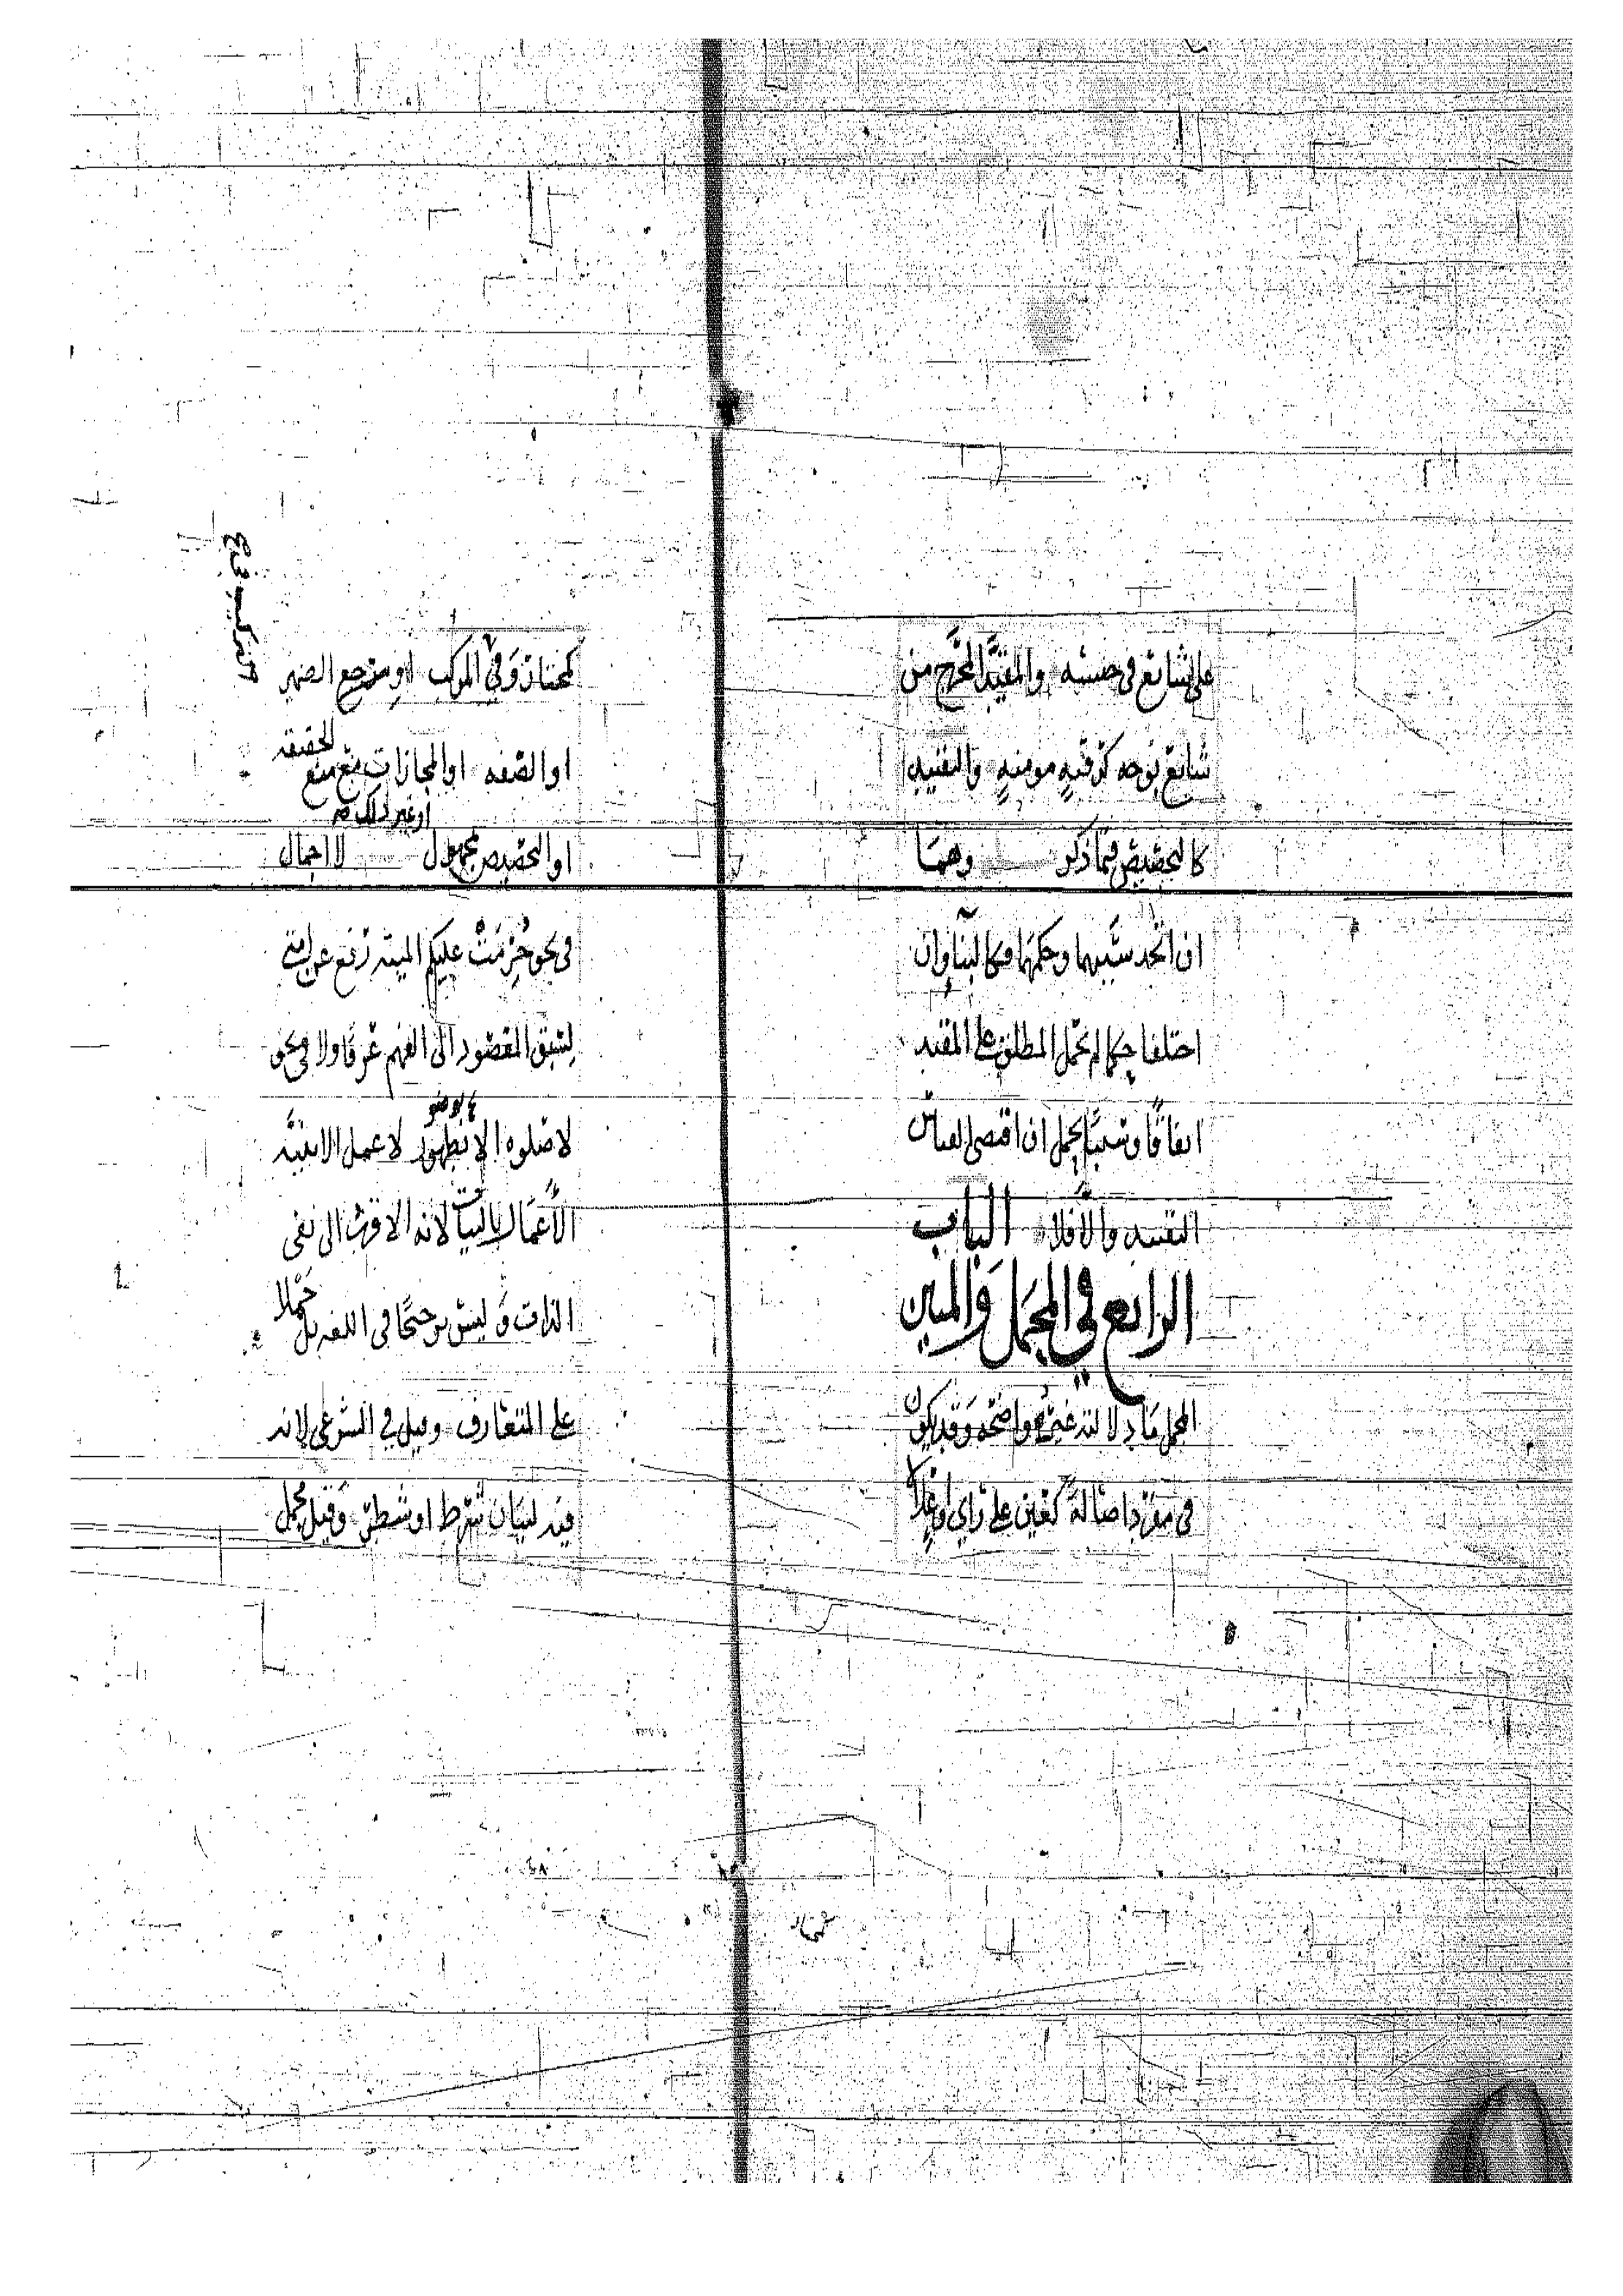 على شايع في جنسه والمقيد المخرج من
شايع بوجه كرقبه مومنه والتقييد
كالتخصيص فيما ذكر وهما
ان اتحد سببهما وحكمهما فكالبناوان
اختلفا حكما لم يحمل المطلق على المقيد
اتفاقًا وسببًا يحمل ان اقتضى القياس
التقييد والا فلا الباب
الرابع في المجمل والمبين
المجمل ما دلالته غير واضحه وقد يكون
في مفرد اصالةً كعين على راي اوإعلالا
كمختار وفي المركب او مرجع الضمير
او الصفه او المجازات مع منع الحقيقه
او التخصيص بمجهول او غير ذلك لا اجمال
في نحو حُرِّمَتْ عليكم الميته رفع عن امتي
لسبق المقصود الى الفهم عرفًا ولا في نحو
لا صلوه الا بطهور لا عمل الا بنيَّه
الأعمال بالنيات لانه الاقرب الى نفي
الذات وليس ترجيحًا في اللغه بل حملا
على المتعارف وقيل في الشرعي لانه
فيه لبيان شرط او شطر وقيل مجمل